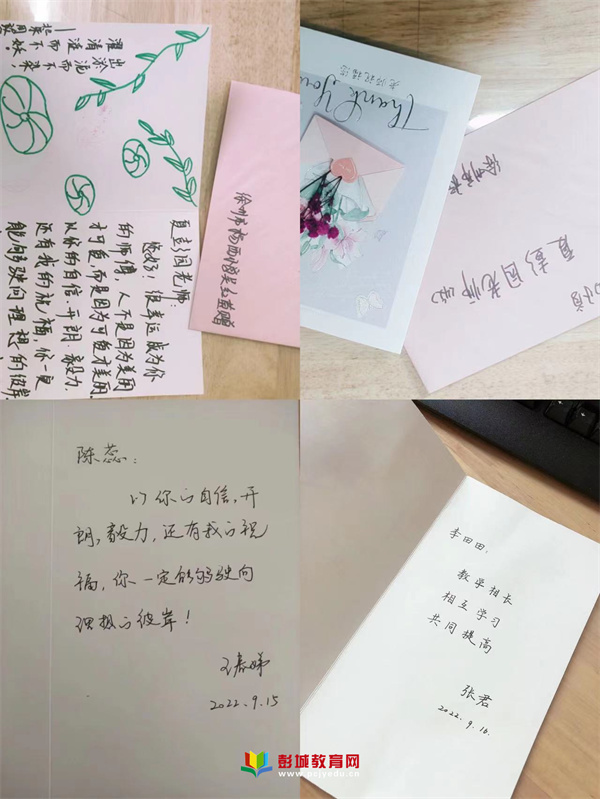 出淤泥而不染，
濯清涟而不妖。
夏彭园老师：
您好，很幸运成为你
的师傅，人不是因为美丽
才可爱，而是因为可爱才美丽
以你的自信、开朗、毅力
还有我的祝福，你一定
能够驶向理想的彼岸
徐州市
Thank You
徐州市
夏彭园老师(收)
陈蕊：
以你的自信、开
朗、毅力，还有我的祝
福，你一定能够驶向
理想的彼岸！
王春娣
2022.9.15
李田田，
教学相长
相互学习
共同提高
张君
2022.9.16.
彭城教育网
www.pcjyedu.cn